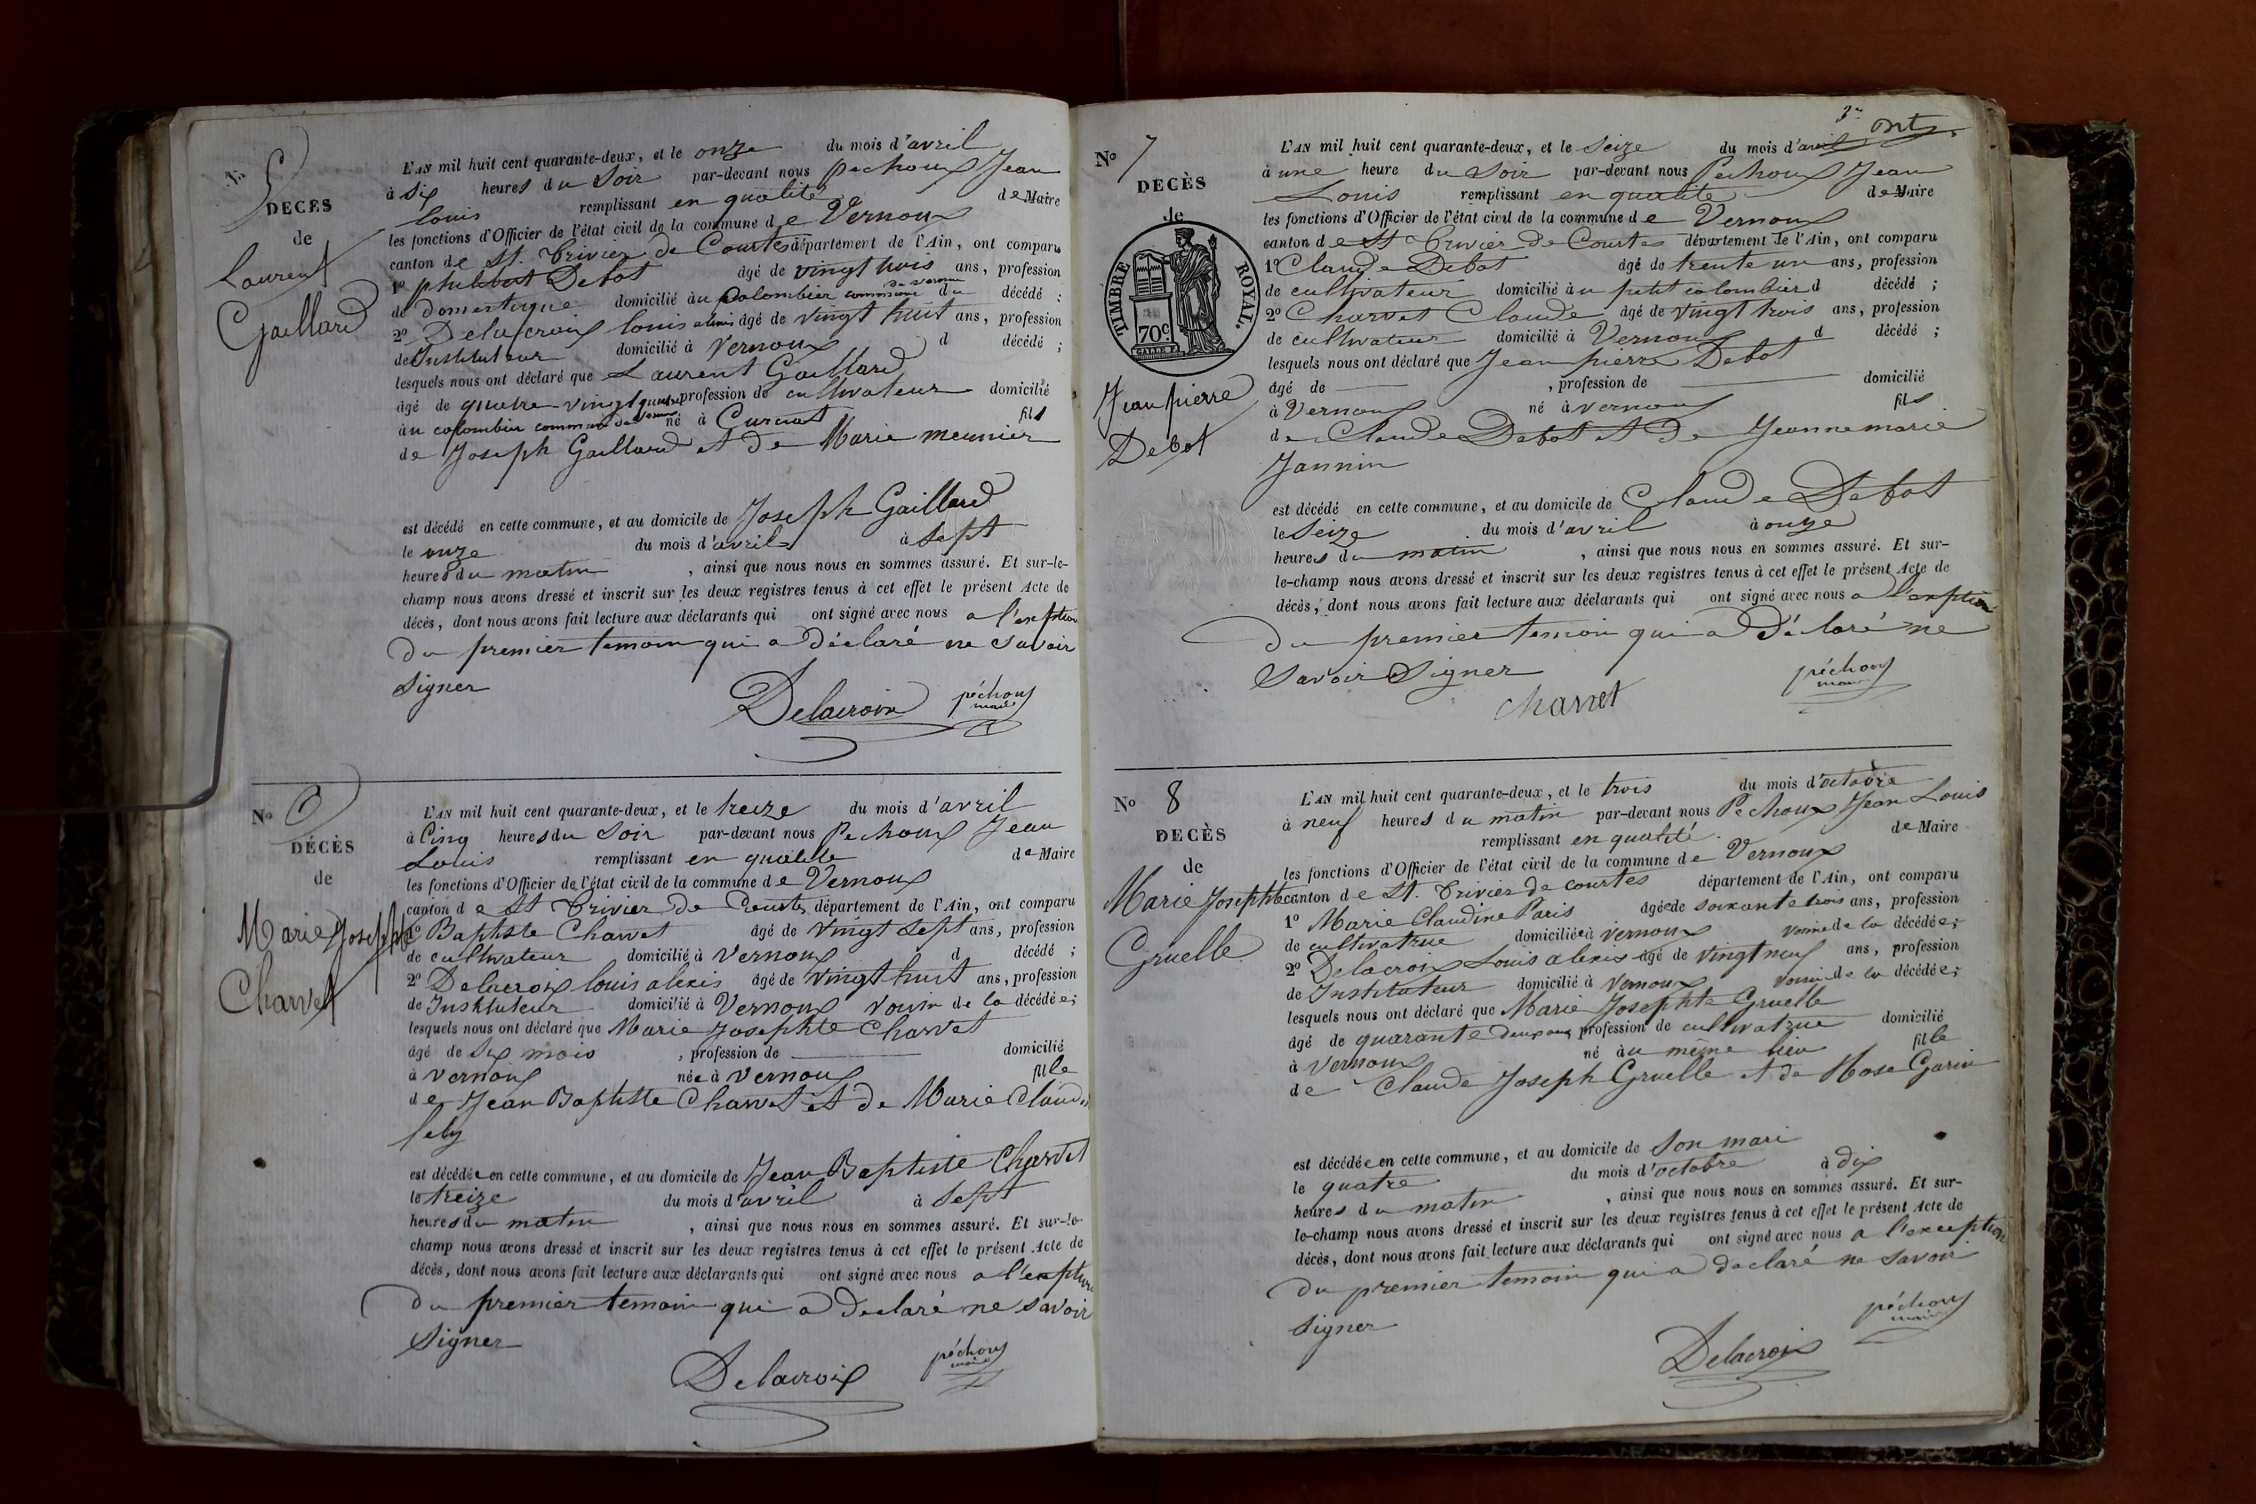 N° 5
DECÈS
de
Laurent
Gaillard
L'AN mil huit cent quarante-deux, et le onze du mois d'avril
à six heures du Soir par-devant nous Pechoux Jean
louis remplissant en qualité de Maire
les fonctions d'Officier de l'état civil de la commune de Vernoux
canton de St. Trivier de Courtes département de l'Ain, ont comparu
1° philibert Debot âgé de vingt trois ans, profession
de domestique domicilié au Colombier commune de Vernoux du décédé ;
2° Delacroix louis alexis âgé de vingt huit ans, profession
de Instituteur domicilié à Vernoux d décédé ;
lesquels nous ont déclaré que Laurent Gaillard
âgé de quatre-vingt quatre profession de cultivateur domicilié
au colombier commune de Vernoux né à Curciat fils
de Joseph Gaillard et de Marie meunier
est décédé en cette commune, et au domicile de Joseph Gaillard
le onze du mois d'avril à Sept
heures du matin , ainsi que nous nous en sommes assuré. Et sur-le-
champ nous avons dressé et inscrit sur les deux registres tenus à cet effet le présent Acte de
décès, dont nous avons fait lecture aux déclarants qui ont signé avec nous a l'exption
du premier temoin qui a déclaré ne savoir
signer
Delacroix péchoux
maire
N° 6
DÉCÈS
de
Marie Josephte
Charvet
L'AN mil huit cent quarante-deux, et le treize du mois d'avril
à Cinq heures du Soir par-devant nous Pechoux Jean
Louis remplissant en qualité de Maire
les fonctions d'Officier de l'état civil de la commune de Vernoux
canton de St Trivier de Courtes département de l'Ain, ont comparu
1° Baptiste Charvet âgé de vingt Sept ans, profession
de cultivateur domicilié à Vernoux d décédé ;
2° Delacroix louis alexis âgé de vingt huit ans, profession
de Instituteur domicilié à Vernoux voisin de la décédée ;
lesquels nous ont déclaré que Marie Josephte Charvet
âgé de Six mois , profession de domicilié
à Vernoux née à Vernoux fille
de Jean Baptiste Charvet et de Marie Claudine
fely
est décédée en cette commune, et au domicile de Jean Baptiste Charvet
le treize du mois d'avril à Sept
heures du matin , ainsi que nous nous en sommes assuré. Et sur-le-
champ nous avons dressé et inscrit sur les deux registres tenus à cet effet le présent Acte de
décès, dont nous avons fait lecture aux déclarants qui ont signé avec nous a l'exption
du premier temoin qui a declaré ne savoir
signer
Delacroix péchoux
maire
N° 7
DECÈS
de
TIMBRE ROYAL.
70c.
Jean pierre
Debot
L'AN mil huit cent quarante-deux, et le Seize du mois d'avril
à une heure du Soir par-devant nous Pechoux Jean
Louis remplissant en qualité de Maire
les fonctions d'Officier de l'état civil de la commune de Vernoux
canton de St Trivier de Courtes département de l'Ain, ont comparu
1° Claude Debot âgé de trente un ans, profession
de cultivateur domicilié au petit colombier d décédé ;
2° Charvet Claude âgé de vingt trois ans, profession
de cultivateur domicilié à Vernoux d décédé ;
lesquels nous ont déclaré que Jean pierre Debot
âgé de , profession de domicilié
à Vernoux né à Vernoux fils
de Claude Debot et de Jeanne marie
Jannin
est décédé en cette commune, et au domicile de Claude Debot
le Seize du mois d'avril à onze
heures du matin , ainsi que nous nous en sommes assuré. Et sur-
le-champ nous avons dressé et inscrit sur les deux registres tenus à cet effet le présent Acte de
décès, dont nous avons fait lecture aux déclarants qui ont signé avec nous a l'exption
du premier temoin qui a Déclaré ne
Savoir Signer
Charvet péchoux
maire
N° 8
DECÈS
de
Marie Josephte
Gruelle
L'AN mil huit cent quarante-deux, et le trois du mois d'octobre
à neuf heures du matin par-devant nous Pechoux Jean Louis
remplissant en qualité de Maire
les fonctions d'Officier de l'état civil de la commune de Vernoux
canton de St. Trivier de courtes département de l'Ain, ont comparu
1° Marie Claudine Paris âgée de soixante trois ans, profession
de cultivatrice domiciliée à Vernoux voisine de la décédée ;
2° Delacroix Louis alexis âgé de vingt neuf ans, profession
de Instituteur domicilié à Vernoux voisin de la décédée ;
lesquels nous ont déclaré que Marie Josephte Gruelle
âgé de quarante deux ans profession de cultivatrice domicilié
à Vernoux né au même lieu fille
de Claude Joseph Gruelle et de Rose Garin
est décédée en cette commune, et au domicile de son mari
le quatre du mois d'octobre à dix
heures du matin , ainsi que nous nous en sommes assuré. Et sur-
le-champ nous avons dressé et inscrit sur les deux registres tenus à cet effet le présent Acte de
décès, dont nous avons fait lecture aux déclarants qui ont signé avec nous a l'exception
du premier temoin qui a declaré ne savoir
signer
Delacroix péchoux
maire